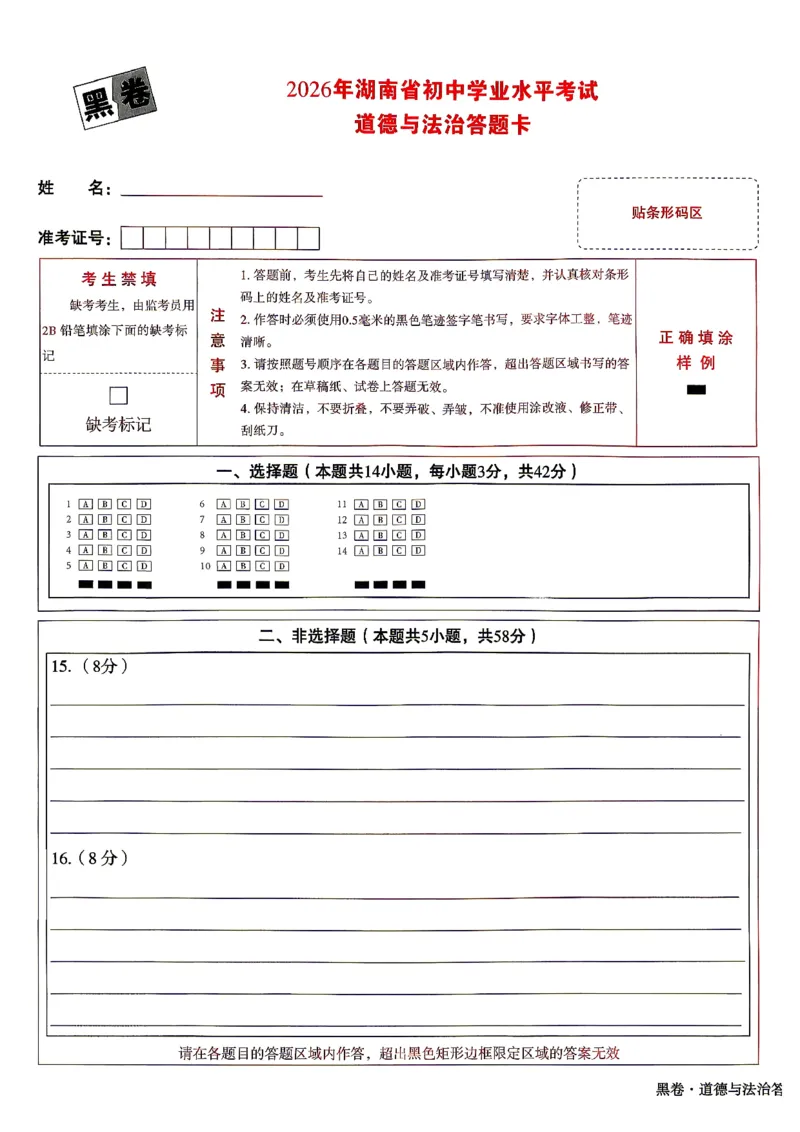 黑卷
2026年湖南省初中学业水平考试
道德与法治答题卡
姓 名：
贴条形码区
准考证号：
考生禁填
缺考考生，由监考员用
2B 铅笔填涂下面的缺考标
记
缺考标记
注意事项
1. 答题前，考生先将自己的姓名及准考证号填写清楚，并认真核对条形
码上的姓名及准考证号。
2. 作答时必须使用0.5毫米的黑色笔迹签字笔书写，要求字体工整，笔迹
清晰。
3. 请按照题号顺序在各题目的答题区域内作答，超出答题区域书写的答
案无效；在草稿纸、试卷上答题无效。
4. 保持清洁，不要折叠，不要弄破、弄皱，不准使用涂改液、修正带、
刮纸刀。
正确填涂
样例
一、选择题（本题共14小题，每小题3分，共42分）
1 A B C D 6 A B C D 11 A B C D
2 A B C D 7 A B C D 12 A B C D
3 A B C D 8 A B C D 13 A B C D
4 A B C D 9 A B C D 14 A B C D
5 A B C D 10 A B C D
二、非选择题（本题共5小题，共58分）
15.（8分）
16.（8分）
请在各题目的答题区域内作答，超出黑色矩形边框限定区域的答案无效
黑卷·道德与法治答